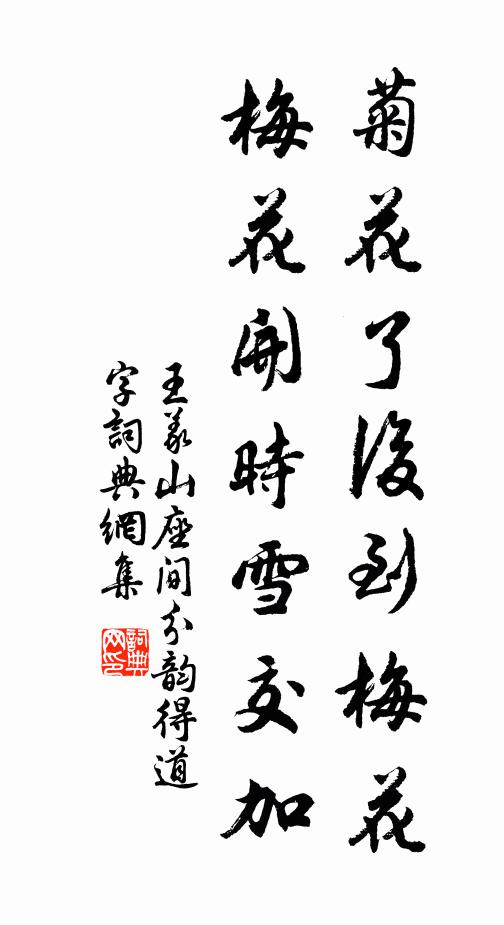 菊花了後到梅花
梅花開時雪交加
王義山座間分韵得道
字詞典網集
詞典网印